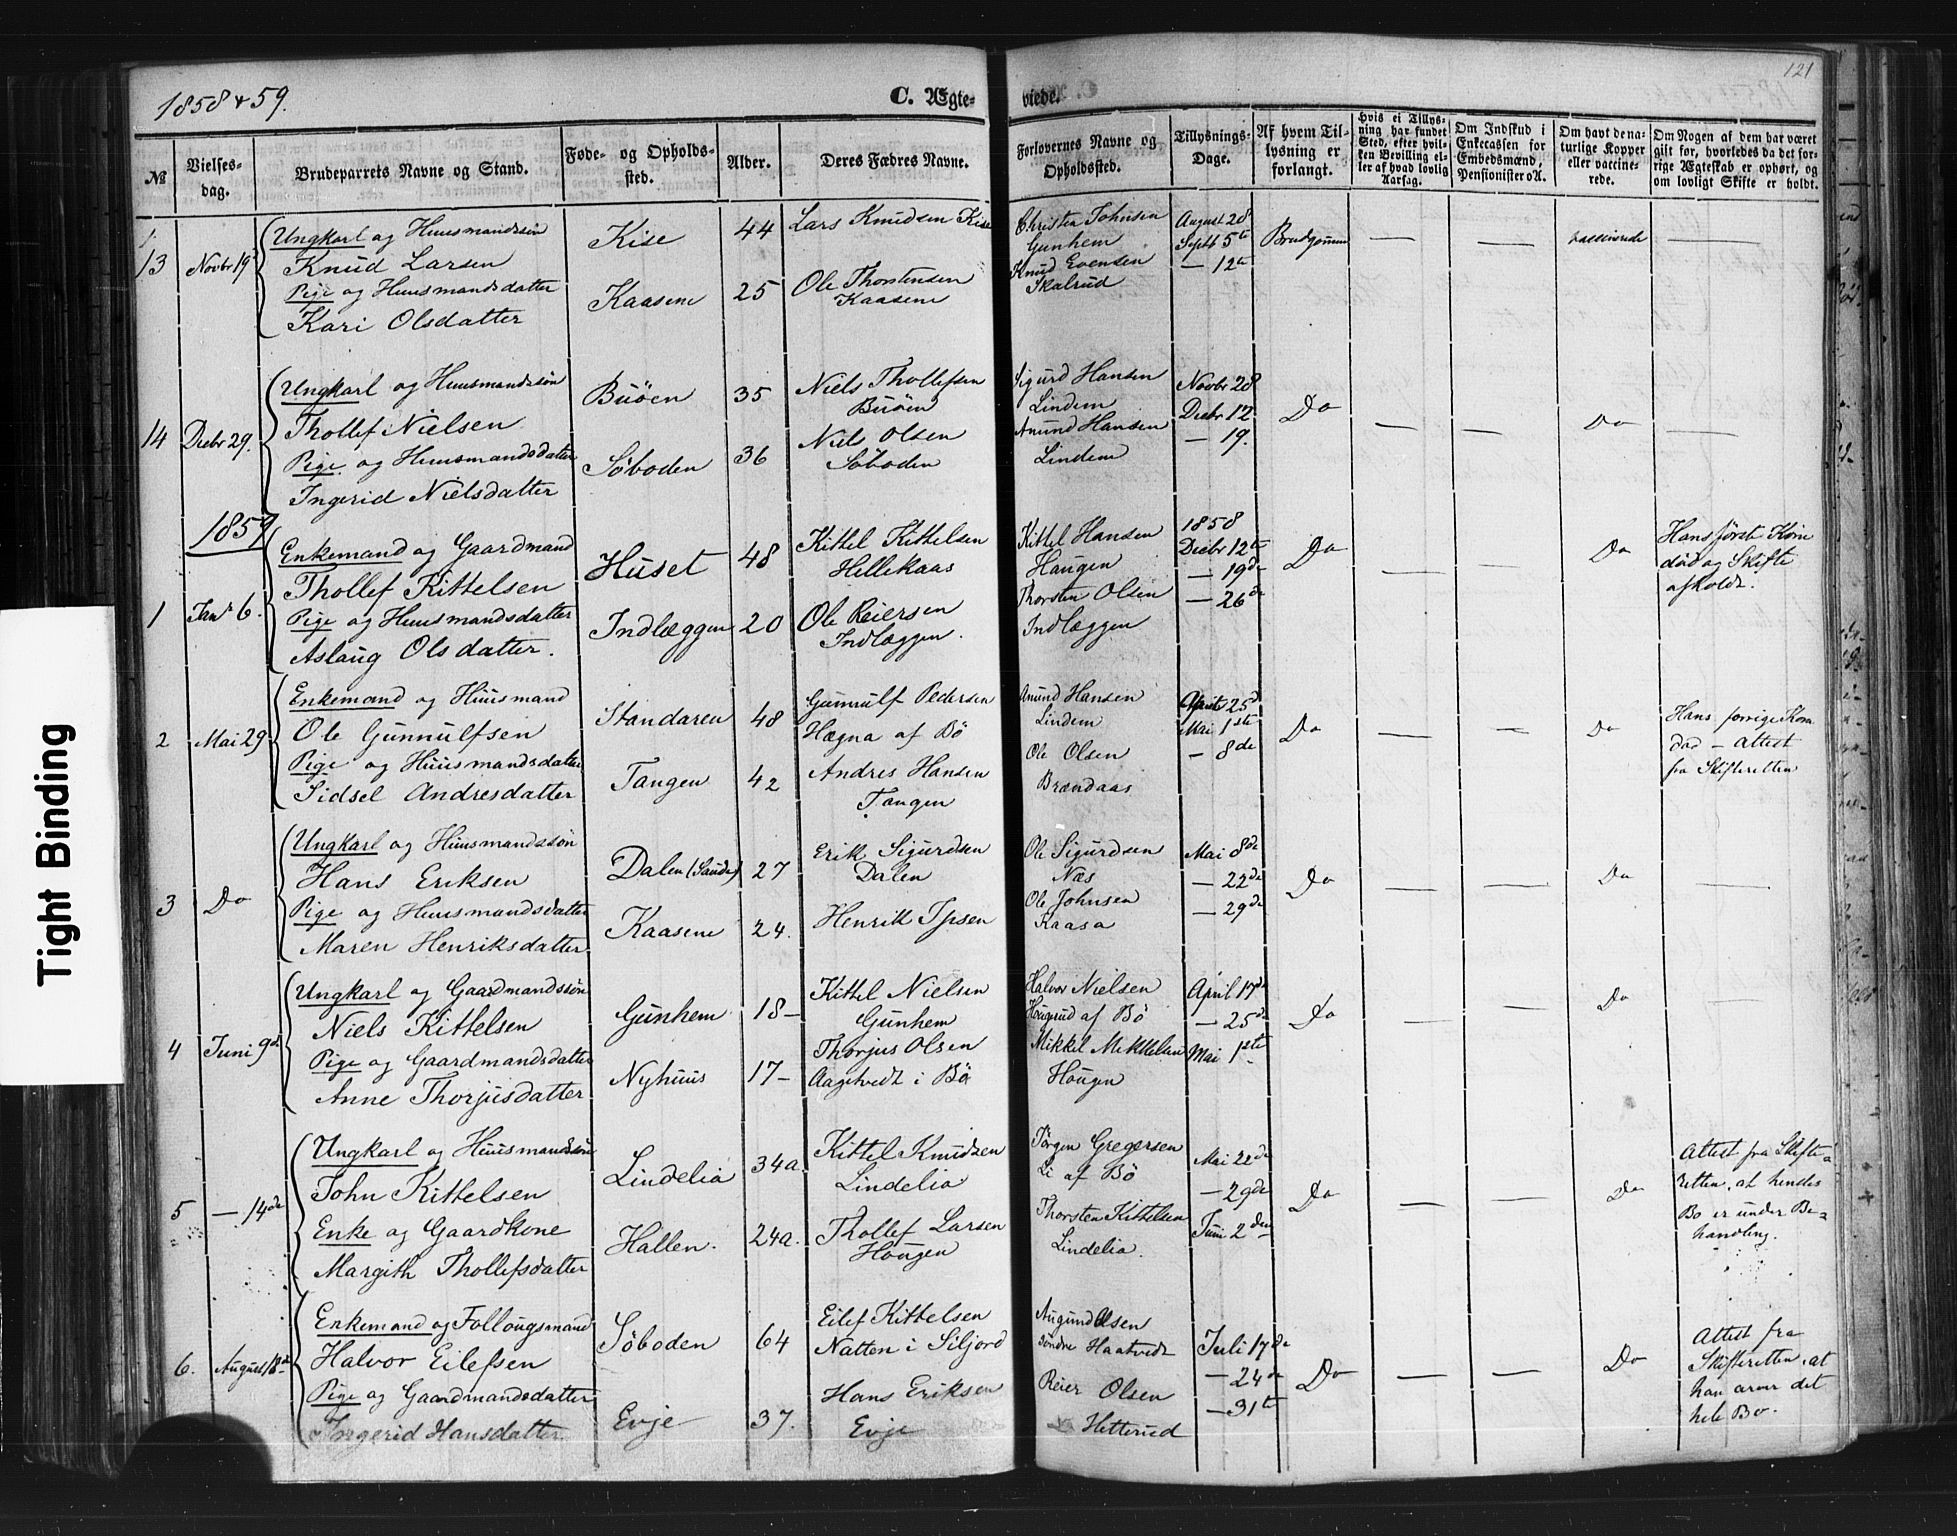 1858 & 59.
C. Ægte-
viede.
121
№
Vielses-
dag.
Brudeparrets Navne og Stand.
Føde- og Opholds-
sted.
Alder.
Deres Fædres Navne.
Forlovernes Navne og
Opholdssted.
Tillysnings-
Dage.
Af hvem Til-
lysning er
forlangt.
Hvis ei Tillys-
ning har fundet
Sted, efter hvil-
ken Bevilling el-
ler af hvad lovlig
Aarsag.
Om Indskud i
Enkecassen for
Embedsmænd,
Pensionister o.A.
Om havt de na-
turlige Kopper
eller vaccine-
rede.
Om Nogen af dem har været
gift før, hvorledes da det for-
rige Ægteskab er ophørt, og
om lovligt Skifte er holdt.
13
Novbr 19
Ungkarl og Huusmandssøn
Knud Larsen
Pige og Huusmandsdatter
Kari Olsdatter
Kise
Kaasene
44
25
Lars Knudsen Kise
Ole Thorstensen
Kaasene
Christen Johnsen
Gunhem
Knud Evensen
Skalrud
August 28
Septb 5te
— 12te
Brudgommen
—
—
vaccinerede
—
14
Decbr 29.
Ungkarl og Huusmandssøn
Thollef Nielsen
Pige og Huusmandsdatter
Ingerid Nielsdatter
Buöen
Söboden
35
36
Niels Thollefsen
Buöen
Niels Olsen
Söboden
Sigurd Hansen
Lindem
Anund Hansen
Lindem
Novbr 28
Decbr 12
— 19.
Do
—
—
Do
—
1859
1
Janr 6.
Enkemand og Gaardmand
Thollef Kittelsen
Pige og Huusmandsdatter
Aslaug Olsdatter.
Huset
Indlæggen
48
20
Kittel Kittelsen
Hellekaas
Ole Reiersen
Indlæggen.
Kittel Hansen
Haugen
Thorsten Olsen
Indlæggen
1858
Decbr 12te
— 19de
— 26de
Do
Do
Hans første Kone
død og Skifte
afholdt.
2
Mai 29
Enkemand og Huusmand
Ole Gunnulfsen
Pige og Huusmandsdatter
Sidsel Andresdatter
Standaren
Tangen
48
42
Gunnulf Pedersen
Hægna af Bö
Andres Hansen
Tangen
Anund Hansen
Lindem
Ole Olsen
Brændaas
April 25de
Mai 1ste
— 8de
Do
—
—
Do
Hans forrige Kone
død — Attest
fra Skifteretten
3
Do
Ungkarl og Huusmandssøn
Hans Eriksen
Pige og Huusmandsdatter
Maren Henriksdatter
Dalen (Saude)
Kaasene
27
24.
Erik Sigurdsen
Dalen
Henrik Ipsen
Ole Sigurdsen
Næs
Ole Johnsen
Kaasa
Mai 8de
— 22de
— 29de
Do
—
—
Do
—
4
Juni 9de
Ungkarl og Gaardmandssøn
Niels Kittelsen
Pige og Gaardmandsdatter
Anne Thorjusdatter
Gunhem
Nyhuus
18-
17-
Kittel Nielsen
Gunhem
Thorjus Olsen
Aagetvedt i Bö
Halvor Nielsen
Hougerud af Bö
Mikkel Mikkelsen
Hougen
April 17de
— 25de
Mai 1ste
Do
—
—
Do
—
5
— 14de
Ungkarl og Huusmandssøn
John Kittelsen
Enke og Gaardkone
Margith Thollefsdatter
Lindelia
Hallen.
34a.
24a.
Kittel Knudsen
Lindelia
Thollef Larsen
Hougen
Jörgen Gregersen
Li af Bö
Thorsten Kittelsen
Lindelia.
Mai 22de
— 29de
Juni 2den
Do
—
—
Do
Attest fra Skifte-
retten, at hendes
Bo er under Be-
handling.
6.
August 18de
Enkemand og Follougsmand
Halvor Eilefsen
Pige og Gaardmandsdatter
Ingerid Hansdatter
Söboden
Evje
64
37.
Eilef Kittelsen
Natten i Siljord
Hans Eriksen
Evje
Augund Olsen
söndre Haatvedt
Reier Olsen
Hetterud
Juli 17de
— 24de
— 31te
Do
—
—
Do
Attest fra
Skifteretten, at
han arver det
hele Bo.
Tight Binding